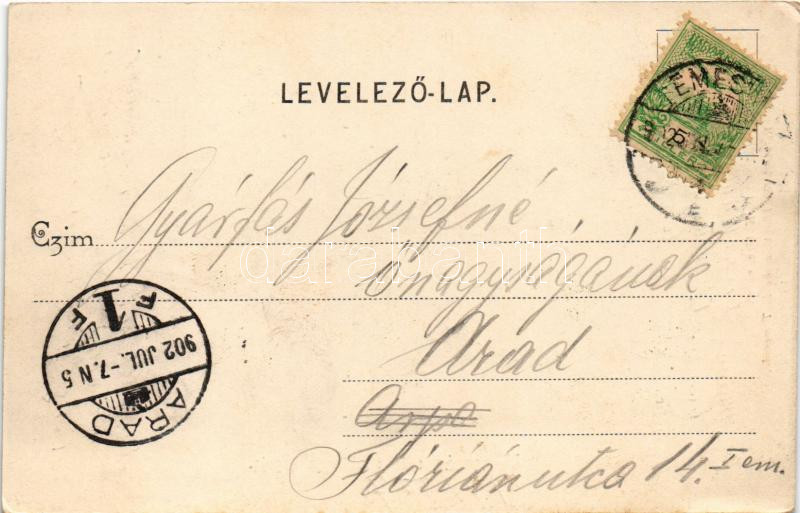 LEVELEZŐ-LAP.
TEMES
Czim Gyárfás Józsefné
őnagyságának
Arad
Flóriánutca 14. I em.
ARAD
902 JUL.-7.N 5
F 1 F
darabanth